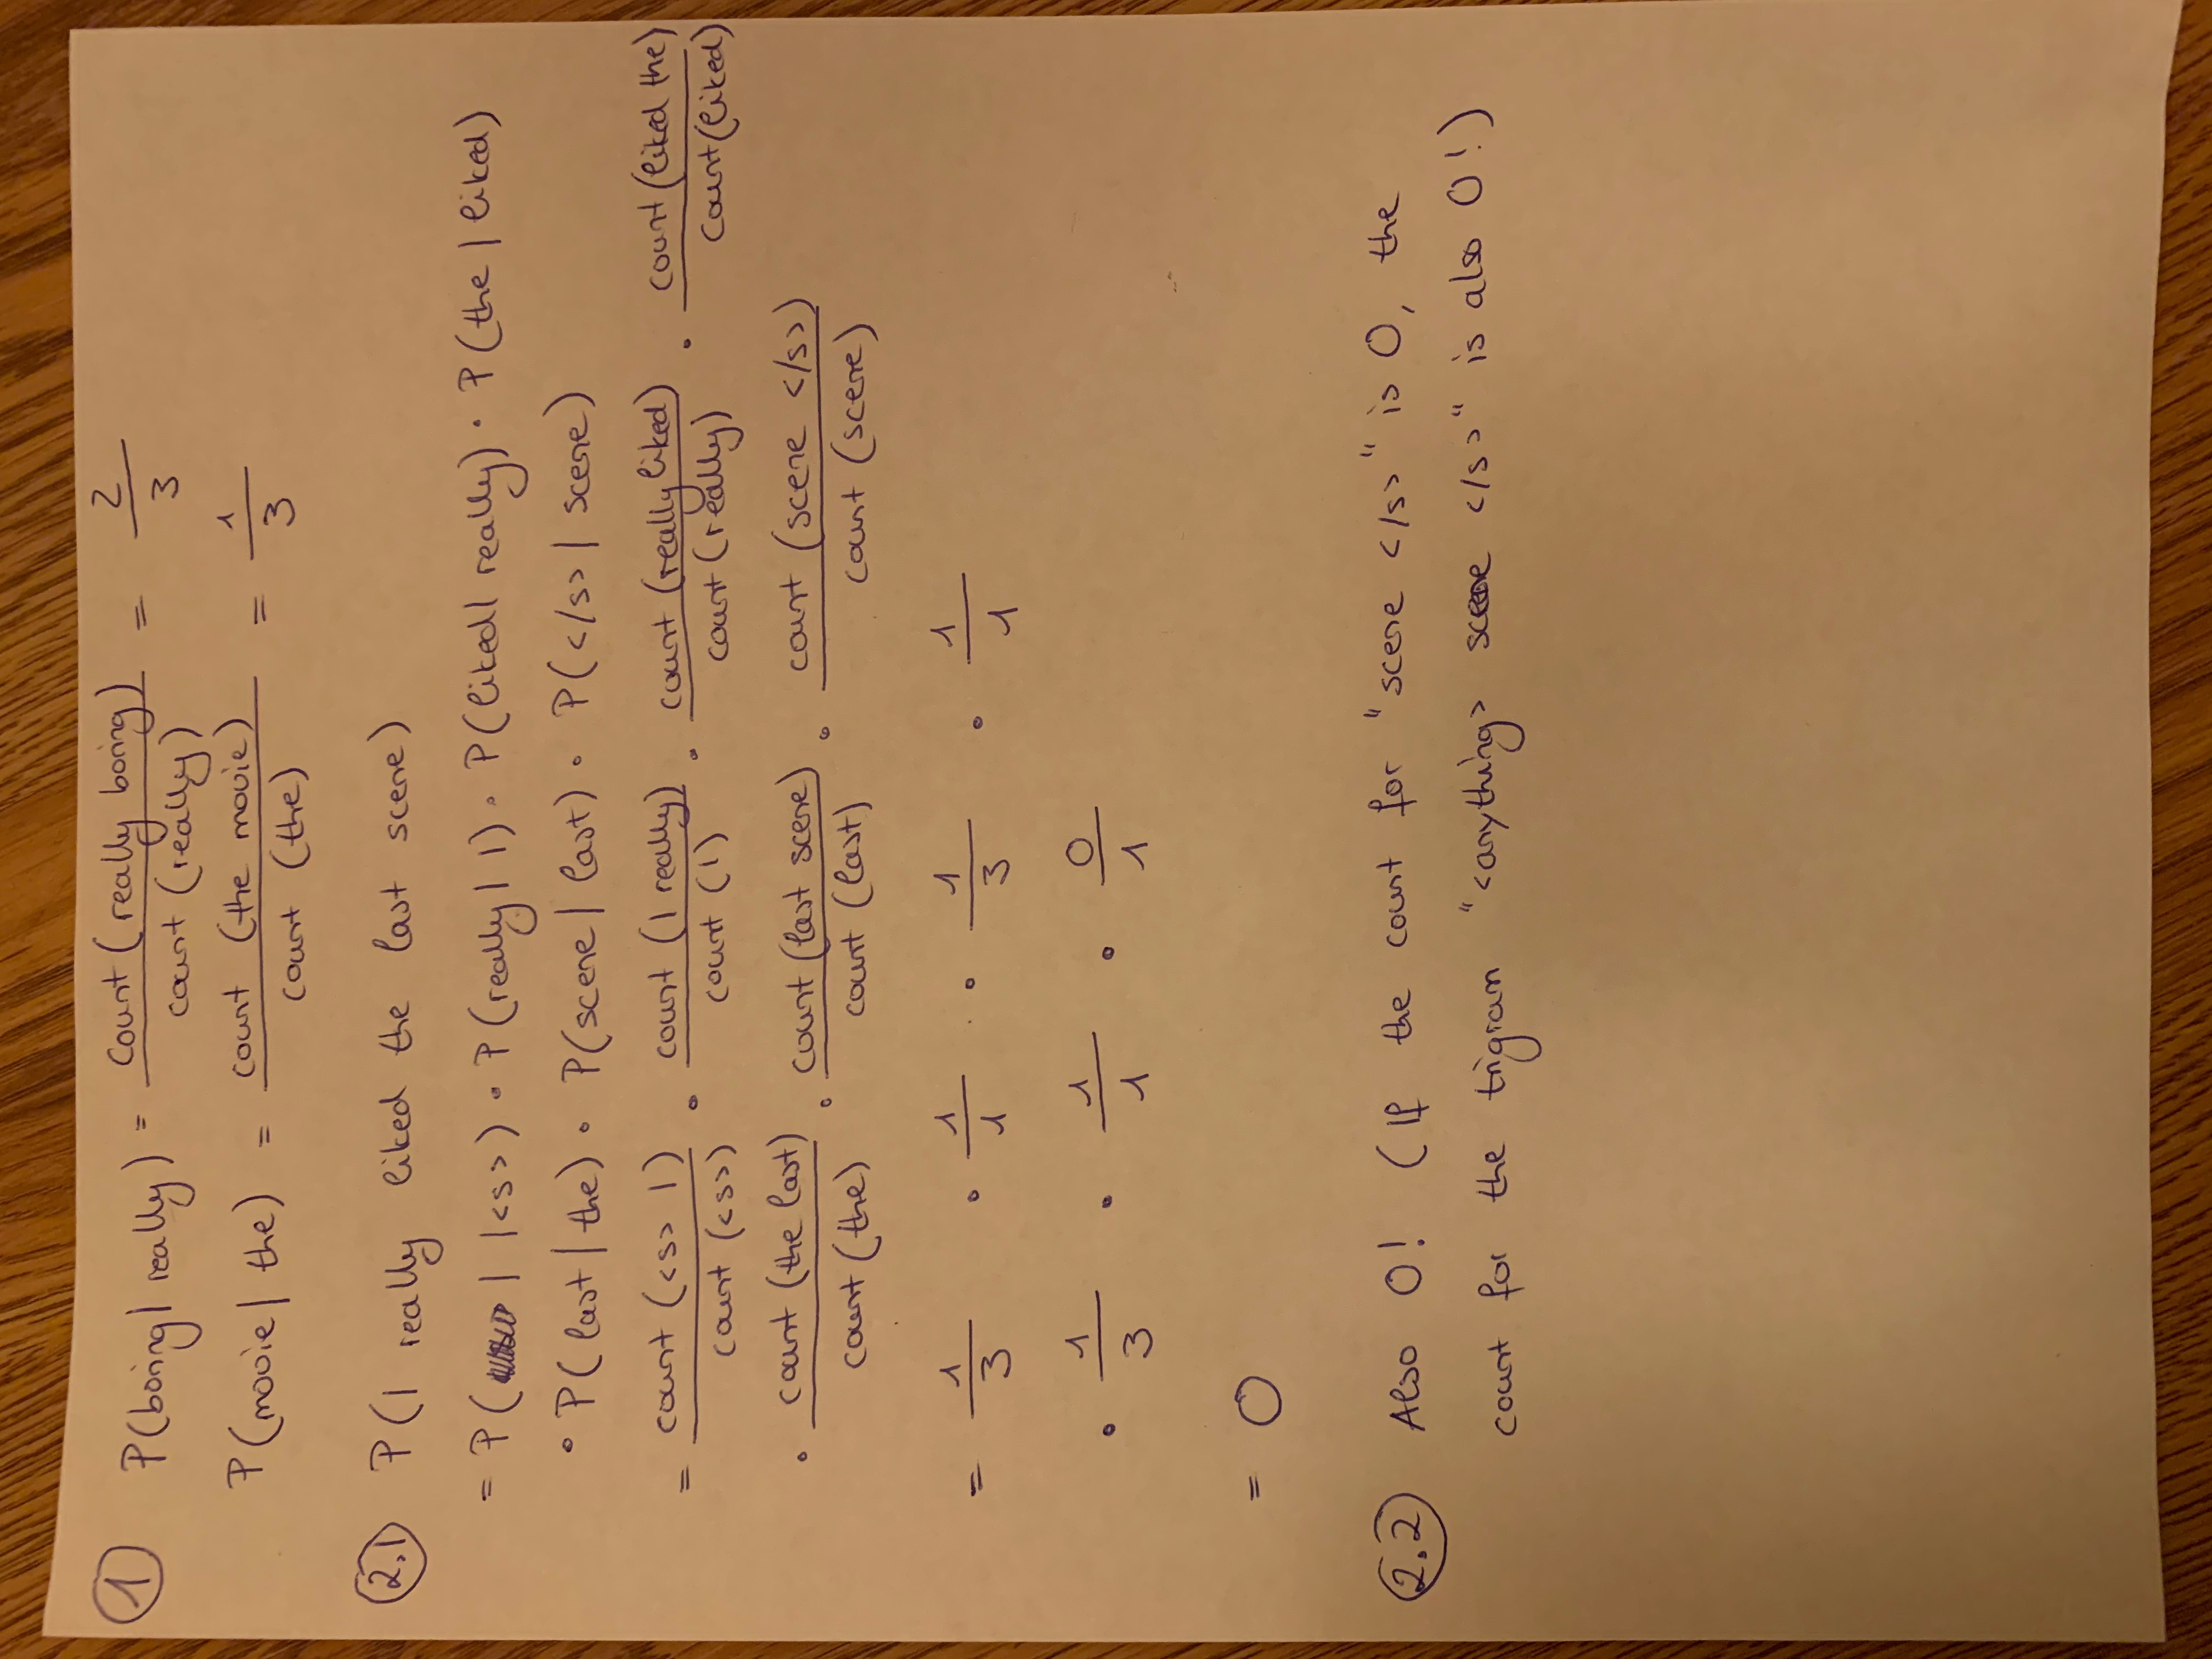 1 P(boring | really) = count (really boring) / count (really) = 2 / 3
P(movie | the) = count (the movie) / count (the) = 1 / 3
2.1 P(I really liked the last scene)
= P( I | <s>) · P(really | I) · P(liked | really) · P(the | liked)
· P(last | the) · P(scene | last) · P(</s> | scene)
= count (<s> I) / count (<s>) · count (I really) / count (I) · count (really liked) / count (really) · count (liked the) / count (liked)
· count (the last) / count (the) · count (last scene) / count (last) · count (scene </s>) / count (scene)
= 1 / 3 · 1 / 1 · 1 / 3 · 1 / 1
· 1 / 3 · 1 / 1 · 0 / 1
= 0
2.2 Also 0! (If the count for "scene </s>" is 0, the
count for the trigram "<anything> scene </s>" is also 0!)